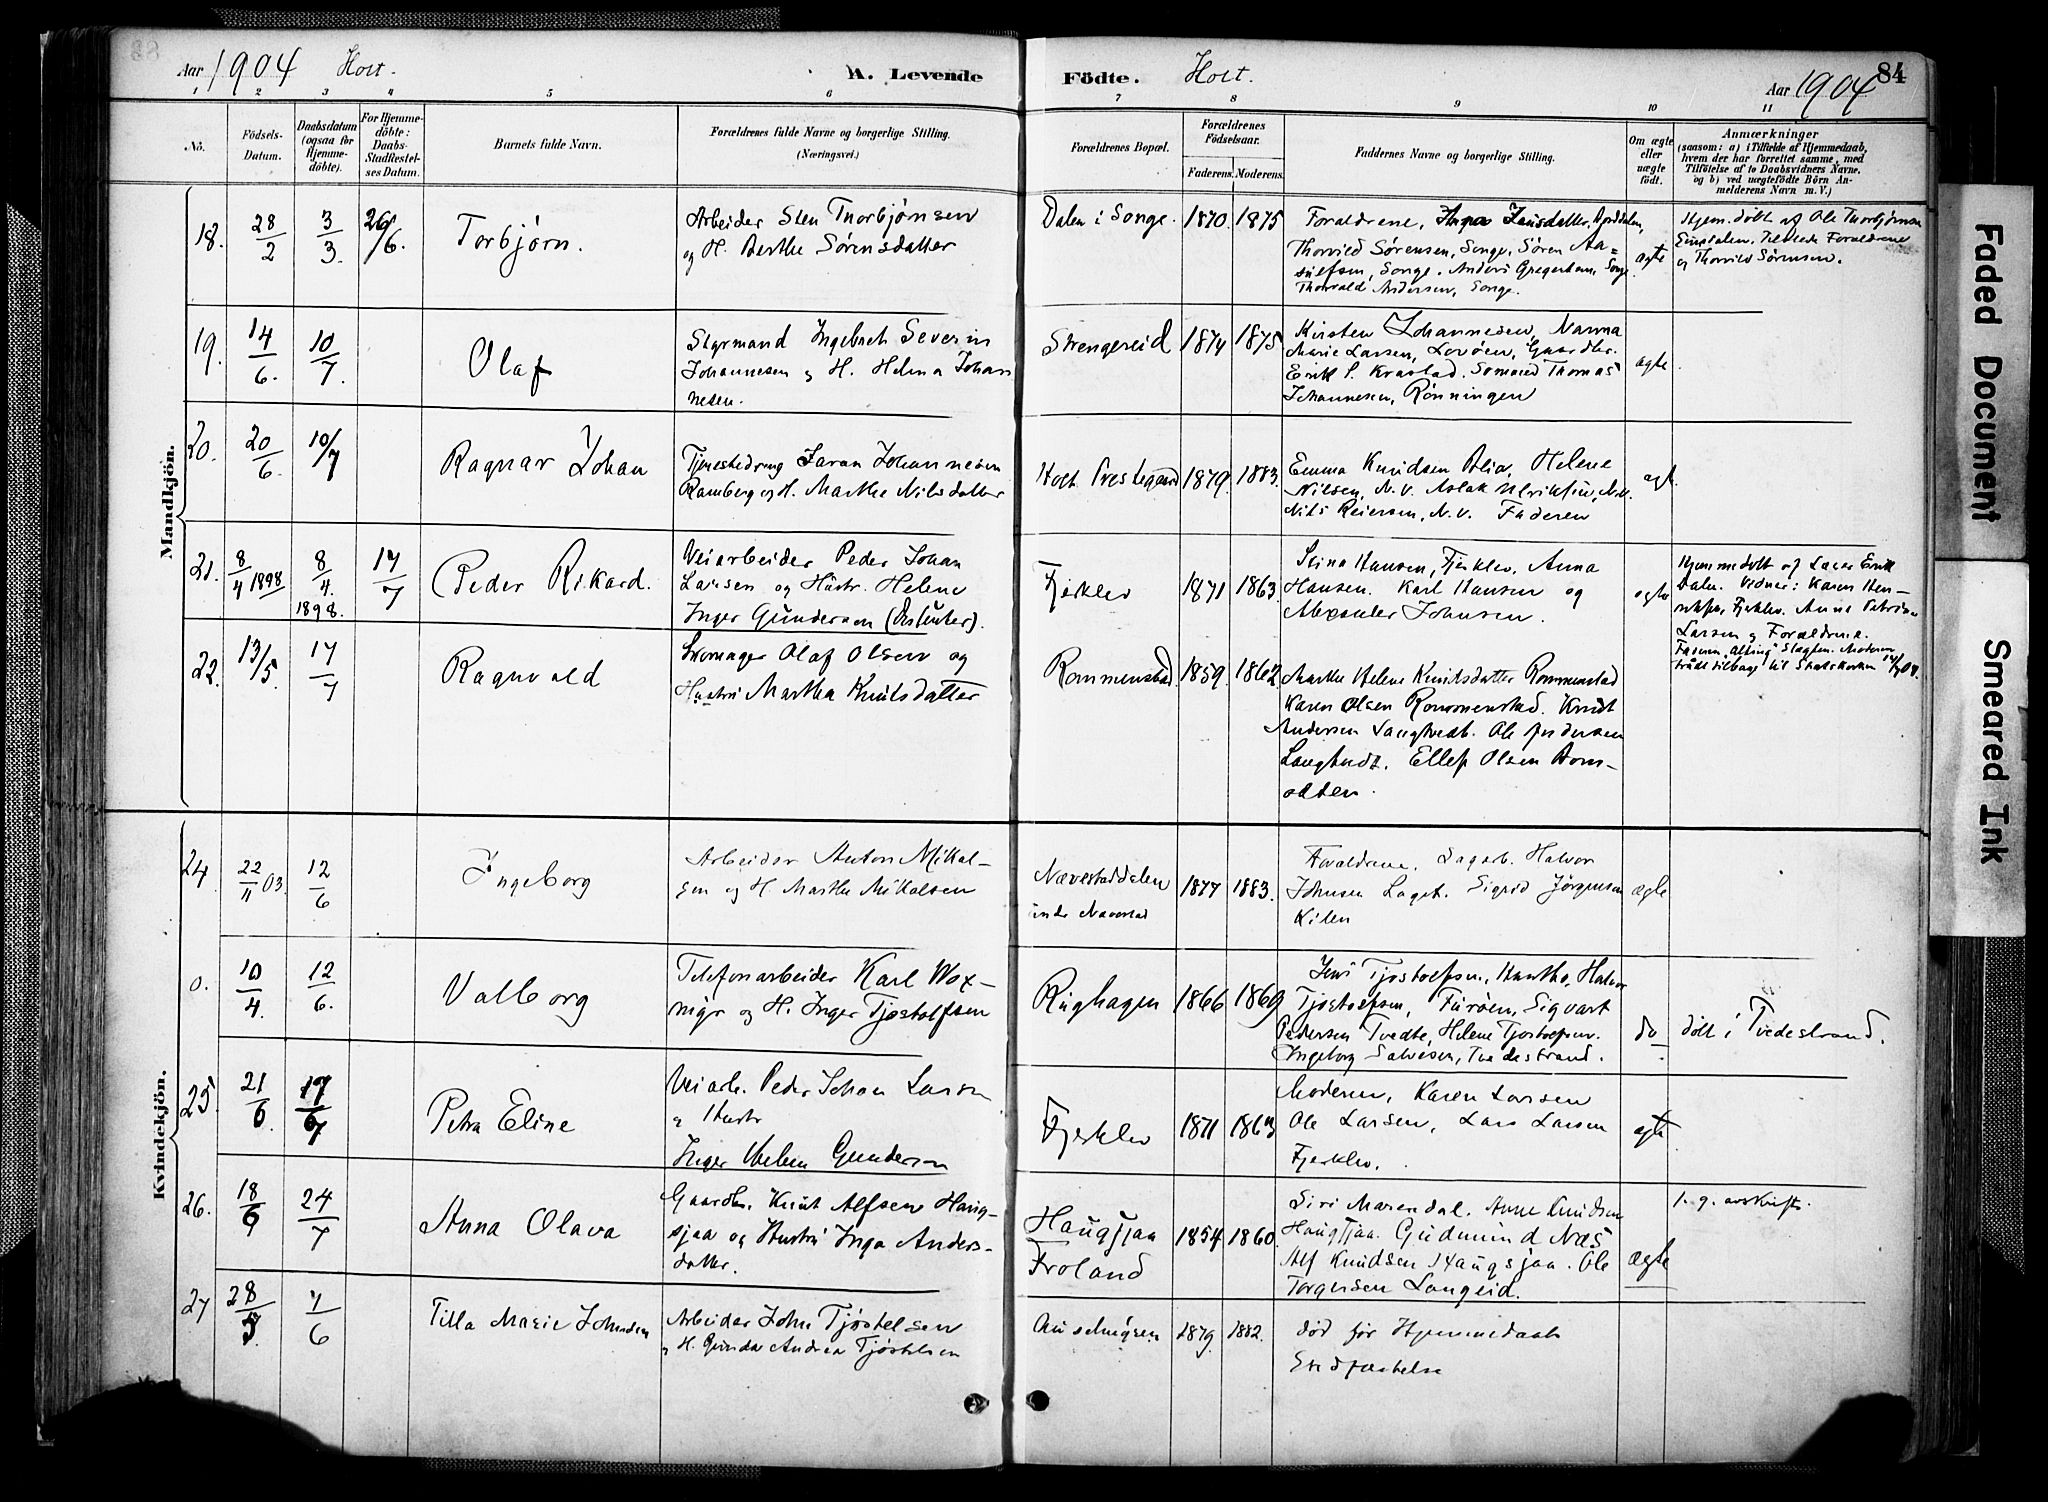 Aar 1904 Holt. A. Levende Födte. Holt. Aar 1904 84
1 2 3 4 5 6 7 8 9 10 11
No. Födsels-Datum. Daabsdatum (ogsaa for Hjemmedöbte). For Hjemmedöbte: Daabs-Stadfæstelses Datum. Barnets fulde Navn. Forældrenes fulde Navne og borgerlige Stilling. (Næringsvei.) Forældrenes Bopæl. Forældrenes Födselsaar. Faderens. Moderens. Faddernes Navne og borgerlige Stilling. Om ægte eller uægte født. Anmærkninger
(saasom: a) i Tilfælde af Hjemmedaab, hvem der har forrettet samme, med Tilføielse af to Daabsvidners Navne. og b) ved uægtefødte Børn Anmelderens Navn m. V.)
Mandkjön.
18. 28/2 3/3. 26/6. Torbjørn. Arbeider Sten Thorbjørnsen
og H. Berthe Sørensdatter
Dalen i Songe. 1870. 1875 Forældrene,
Thorvild Sørensen, Songe, Søren Aa=
Songe. Anders Songe.
Thorvald Andersen, Songe.
ægte
Hjem. døbt af Ole Thorbjørnsen
Tilstede Forældrene
og Thorvild Sørensen.
19. 14/6. 10/7. Olaf Styrmand Ingebret Severin
Johannesen og H. Helma Johan
nesen.
Strengereid 1874 1875 Kirsten Johannesen, Nanna
Marie Larsen, Gaardbr.
Erik S. Kvastad. Sømand Thomas
Johannesen, Rønningen
ægte.
20. 20/6. 10/7 Ragnar Johan Tjenestedreng Johannesen
Ramberg og H. Marthe Nilsdatter
Holt Prestegaard 1879. 1883. Emma Knudsen Helene
Nilsen, N.V. Aslak Ulriksen, N.V.
Nils Reiersen, N.V. Faderen
ægt.
21. 8/4 1898 8/4. 1898. 17/7 Peder Rikard. Veiarbeider Peder Johan
Larsen og Hustr. Helene
Inger Gunderson
Fjerklev 1871 1863. Stina Hansen, Fjerklev, Anna
Hansen. Karl Hansen og
Johnsen.
ægte
Hjemmedøbt af Lars Erik
Dalen. Vidner: Karen Hen-
riksen, Fjerklev. Anne
Larsen og Forældrene.
til Statskirken
22. 13/5. 17/7 Ragnvald Skomager Olaf Olsen og
Hustru Martha Knutsdatter
Rommenstad. 1859. 1862. Marthe Helene Knutsdatter Rommenstad
Karen Olsen Rommenstad. Knudt
Andersen Ole Pedersen
Ellef Olsen
Kvindekjön.
24. 22/11 03. 12/6 Ingeborg Arbeider Anton Mikal-
sen og H. Marthe Mikalsen
Nævestaddalen
1877 1883. Forældrene. Halvor
Johnsen Sigrid Jørgensen
Kilen
ægte
0. 10/4. 12/6. Valborg Telefonarbeider Karl Wox-
og H. Inger Tjøstolfsen
Ringhagen 1866 1869 Jens Tjøstolfsen, Halvor
Tjøstolfsen, Furøen, Sigvart
Pedersen Tvedte, Helene Tjøstolfsen.
Ingeborg Salvesen, Tvedestrand.
do. døbt i Tvedestrand.
25. 21/6. 17/7 Petra Eline Veiarb. Peder Johan Larsen
og Hustr
Inger Helene Gunderson
Fjerklev 1871 1863 Moderen, Karen Larsen
Ole Larsen, Lars Larsen
Fjerklev.
ægte
26. 18/6 24/7 Anna Olava Gaardbr. Knut Alfsen Haug-
sjaa og Hustru Inga Anders-
datter.
Haugsjaa
Froland
1854 1860. Siri Anne Knudsen
Haugsjaa. Gudmund Næs
Alf Knudsen Haugsjaa. Ole
Torgersen Langeid.
ægte
1. g. avskrift.
27 28/5. 7/6 Tilla Marie Johnsdatter Arbeider John Tjøstelsen
og H. Gunda Andrea Tjøstelsen
1879. 1882. død før Hjemmedaab
Stadfæstelse
Faded Document
Smeared Ink